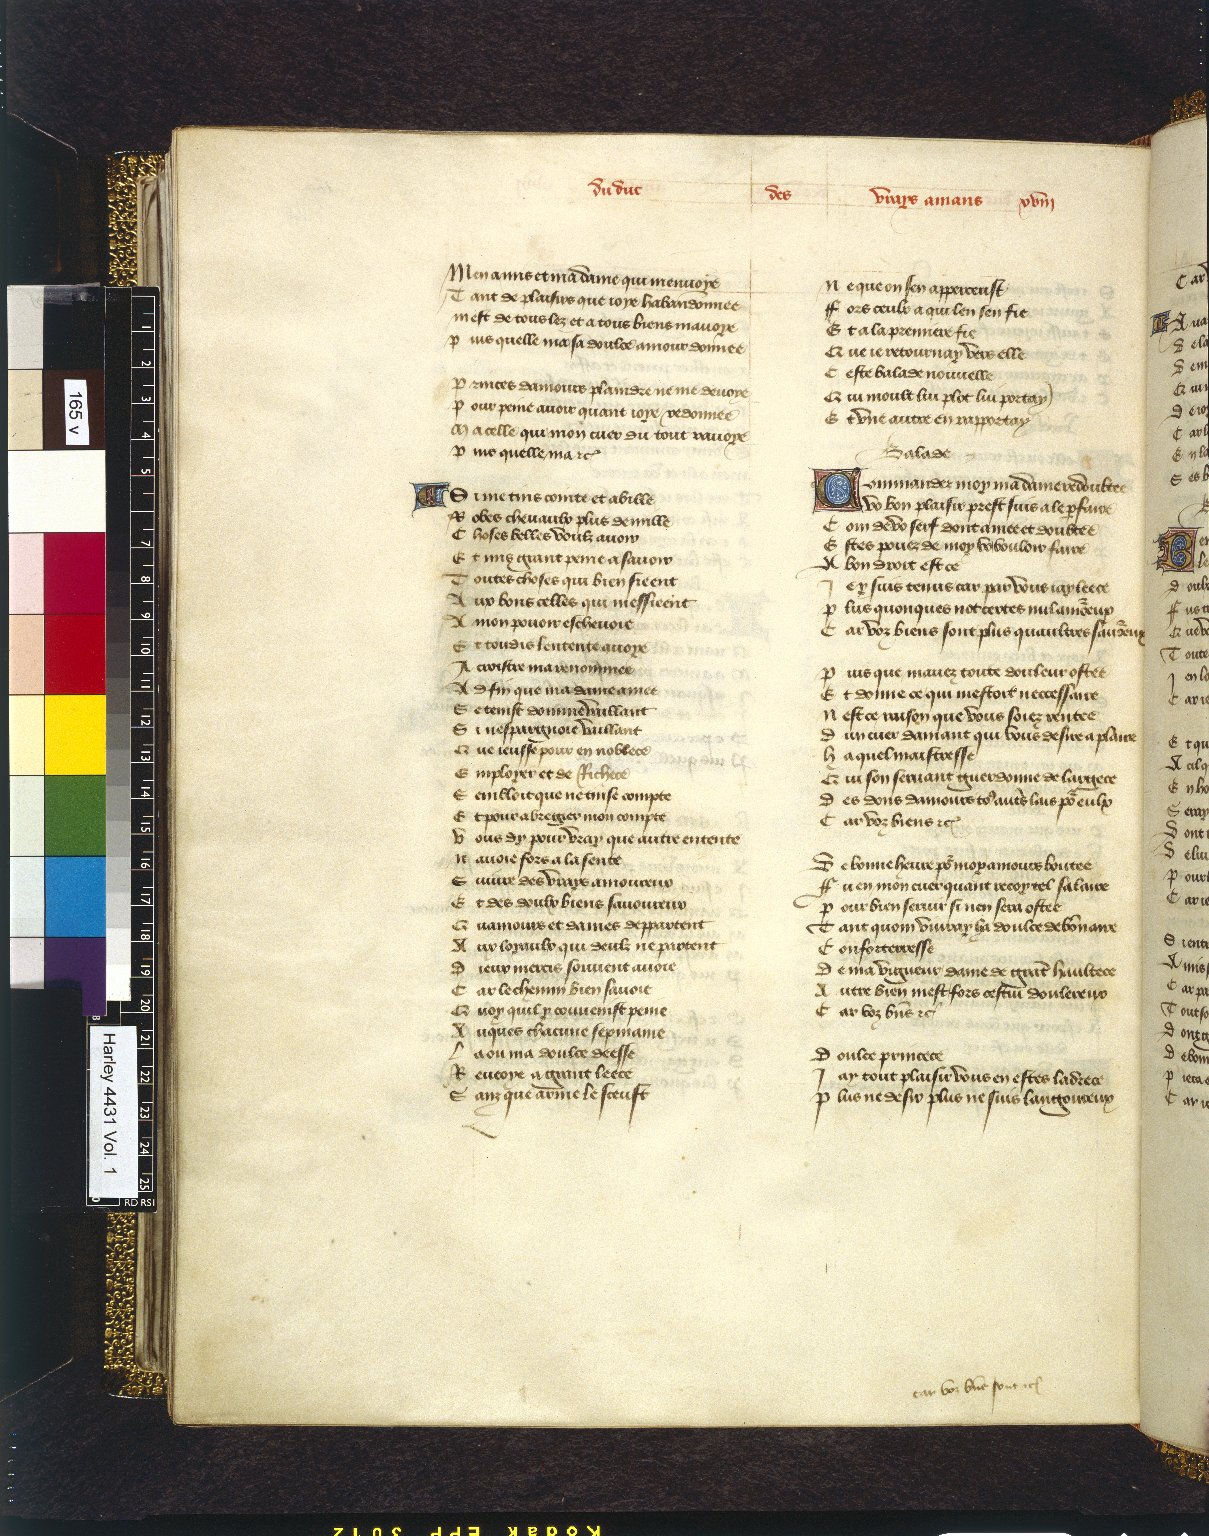 du duc des vrays amans xviii
Mon amis et ma dame qui menvoye
Tant de plaisirs que ioye habandonnee
mest de tous lez et a tous biens mavoye
puis quelle ma sa doulce amour donnee
Princes damours plaindre ne me devoye
Pour peine avoir quant ioye redonnee
Ma celle qui mon cuer du tout ravoye
Puis quelle ma &c
Si me tins cointe et abille
Robes chevaulx plus de mille
Choses belles voulz avoir
Et mis grant peine a savoir
Toutes choses qui bien sieent
Aux bons celles qui messieent
A mon povoir eschevoie
Et toudis lentente avoye
A croistre ma renommee
A d fin que ma dame amee
Se tenist dommevaillant
Si nespargnoie vaillant
Que ieusse pour en noblece
Employer et de Richece
Sembloit que ne tenisse compte
Et pour abregier mon compte
Vous dy pour vray que autre entente
N avoie fors a la sente
Suivre des vrays amoureux
Et des doulx biens savoureux
Quamours et dames deppartent
Aux loyaulx qui deulz ne partent
Dieux mercis souvent avoie
Car le chemin bien savoie
Quoy quil y convenist peine
Auques chacune sepmaine
La ou ma doulce deesse
Reveoye a grant leece
Sanz que ame le sceust
Ne que on sen apperceust
Fors ceulx a qui len sen fie
Et a la premiere fie
Que ie retournay vers elle
Ceste balade nouvelle
Qui moult lui plot lui portay
Et vne autre en rapportay
Balade
Commandez moy ma dame redoubtee
Vo bon plaisir prest suis a le pfaire
Com de vo serf dont amee et doubtee
Estes povez de moy vo vouloir faire
A bon droit est ce
Iey suis tenus car par vous iay leece
Plus quonques not certes nul amoreux
Car voz biens sont plus quaultres savoreux
Puis que mavez toute douleur ostee
Et donne ce qui mestoit neccessaire
Nest ce raison que vous soiez rentee
Dun cuer damant qui vous desire a plaire
Ha quel maistresse
Qui son servant guerdonne de largece
Des dons damours to autres lais po eulx
Car voz biens &c
De bonne heure po moy amours boutee
Fu en mon cuer quant recoy tel salaire
Pour bien servir si nen sera ostee
Tant quom vivray ha doulce debonnaire
Conforterresse
De ma vigueur dame de grant haultece
Autre bien mest fors cestui doulereux
Car voz bns &c
Doulce princece
Iay tout plaisir vous en estes ladrece
Plus ne desir plus ne suis langoureux
car voz bns sont &c
165 v
Harley 4431 Vol. 1
Kodak EPP 3012